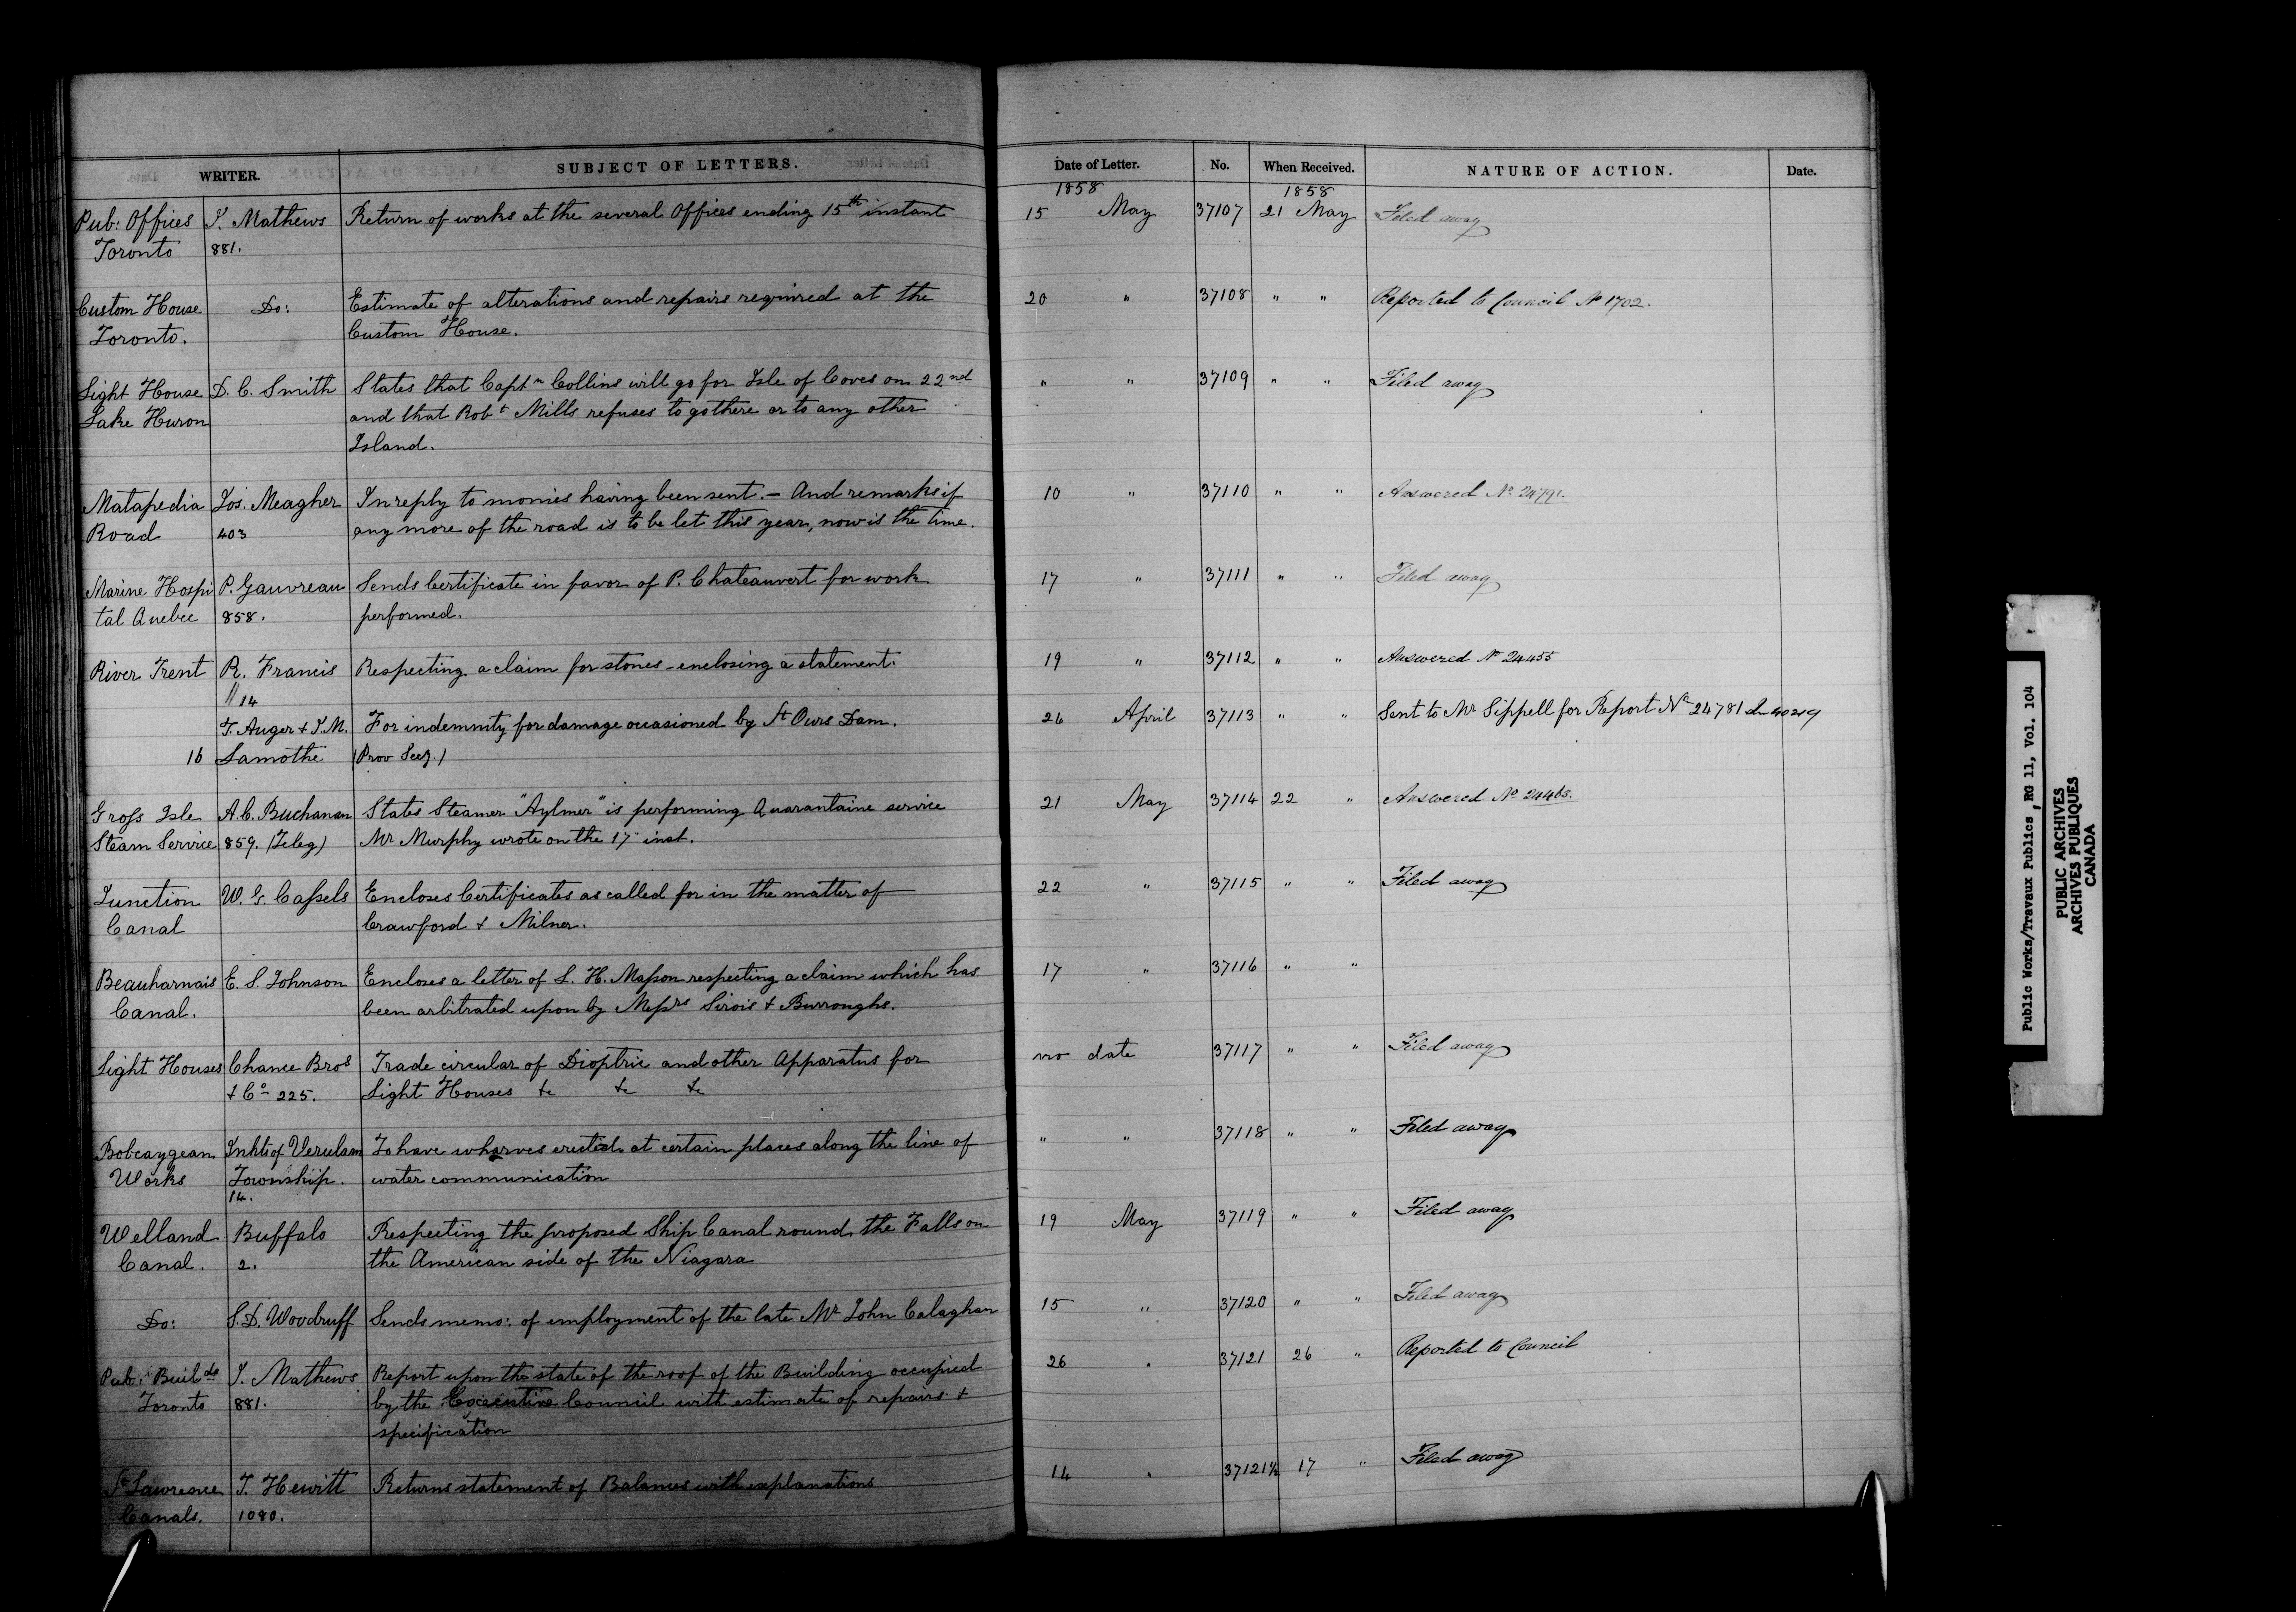 WRITER. SUBJECT OF LETTERS. Date of Letter. No. When Received. NATURE OF ACTION. Date.
1858 1858
Pub: Offices J. Mathews Return of works at the several Offices ending 15th instant 15 May 37107 21 May Filed away
Toronto 881.
Custom House Do: Estimate of alterations and repairs required at the 20 " 37108 " " Reported to Council No 1702.
Toronto. Custom House.
Light House D. C. Smith States that Captn Collins will go for Isle of Coves on 22nd " " 37109 " " Filed away
Lake Huron and that Robt Mills refuses to go there or to any other
Island.
Matapedia Jos. Meagher In reply to monies having been sent. – And remarks if 10 " 37110 " " Answered No
Road 403 any more of the road is to be let this year, now is the time.
Marine Hospi P. Gauvreau Sends Certificate in favor of P. Chateauvert for work 17 " 37111 " " Filed away
tal Quebec 858. performed.
River Trent R. Francis Respecting a claim for stones – enclosing a statement. 19 " 37112 " " Answered No 24455
14
T. Auger + J. M. For indemnity for damage occasioned by St Ours Dam. 26 April 37113 " " Sent to Mr Sippell for Report No 24781 40219
16 Lamothe (Prov Secy.)
Gross Isle A. C. Buchanan States Steamer "Aylmer" is performing Quarantaine service 21 May 37114 22 " Answered No
Steam Service 859. (Teleg) Mr Murphy wrote on the 17 inst.
Junction W. G. Cassels Encloses Certificates as called for in the matter of 22 " 37115 " " Filed away
Canal Crawford + Milner.
Beauharnais E. S. Johnson Encloses a letter of L. H. Masson respecting a claim which has 17 " 37116 " "
Canal. been arbitrated upon by Messrs Sirois + Burroughs.
Light Houses Chance Bros Trade circular of Dioptric and other Apparatus for no date 37117 " " Filed away
+ Co 225. Light Houses &c &c &c
Bobcaygean Inhts of Verulam To have wharves erected at certain places along the line of " " 37118 " " Filed away
Works Township. water communication
14.
Welland Buffalo Respecting the proposed Ship Canal round the Falls on 19 May 37119 " " Filed away
Canal. 2. the American side of the Niagara
Do: S. D. Woodruff Sends memo: of employment of the late Mr John Calaghan 15 " 37120 " " Filed away
Pub: Buildgs J. Mathews Report upon the state of the roof of the Building occupied 26 " 37121 26 " Reported to Council
Toronto 881. by the Executive Council with estimate of repairs +
specification
St Lawrence J. Hewitt Returns statement of Balances with explanations 14 " 37121½ 17 " Filed away
Canals. 1080.
Public Works/Travaux Publics, RG 11, Vol. 104
PUBLIC ARCHIVES
ARCHIVES PUBLIQUES
CANADA